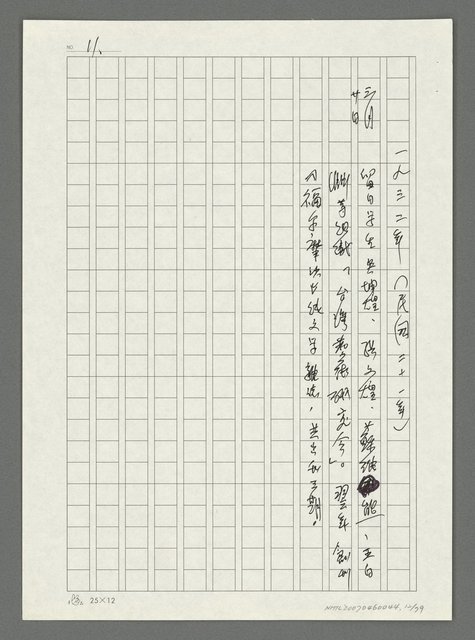 NO. 1/1
一九三二年(民國二十一年)
三月
廿日
留日學生吳坤煌、張文環、蘇維熊、王白
淵等組織「台灣藝術研究會」。翌年創刊
《福爾摩沙》純文學雜誌,共出刊三期。
25×12
NMTL20070460044